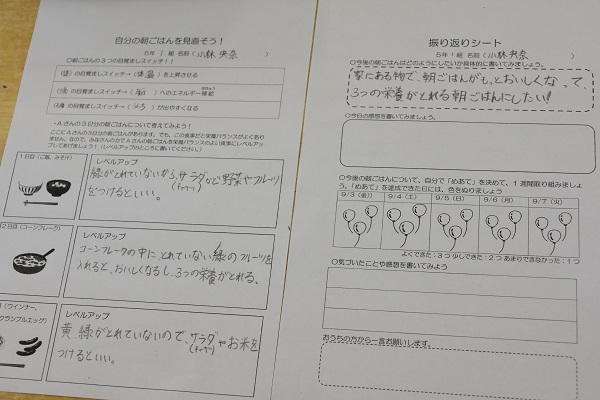 自分の朝ごはんを見直そう！
5年 1組 名前（小林 央奈 ）
○朝ごはんの３つの目覚ましスイッチ！！
の目覚ましスイッチ→（体温）を上昇させる
の目覚ましスイッチ→（脳）へのエネルギー補給
の目覚ましスイッチ→（ ）が出やすくなる
-Ａさんの３日分の朝ごはんについて考えてみよう！
ここにＡさんの３日分の朝ごはんがあります。でも、この食事だと栄養バランスがよくあり
ません。なので、みなさんの力でＡさんの朝ごはんを栄養バランスのよい食事にレベルアッ
プしてあげましょう！（レベルアップのところに書いてください。）
1日目（ご飯、みそ汁）
レベルアップ
緑がとれていないから、サラダなど野菜やフルーツ
をつけるといい。
2日目（コーンフレーク）
レベルアップ
コーンフレークの中に、とれていない緑のフルーツを
入れると、おいしくなるし、3つの栄養がとれる。
（ウインナー、
クランブルエッグ）
レベルアップ
黄 緑がとれていないので、サラダやお米を
つけるといい。
振り返りシート
5年 1組 名前（小林 央奈 ）
○今後の朝ごはんはどのようにしたいか具体的に書いてみましょう。
家にある物で、朝ごはんがもっとおいしくなって、
3つの栄養がとれる朝ごはんにしたい!!
○今日の感想を書いてみましょう。
○今後の朝ごはんについて、自分で「めあて」を決めて、１週間取り組みましょ
う。「めあて」を達成できた日には、色をぬりましょう
9/3（金） 9/4（土） 9/5（日） 9/6（月） 9/7（火）
よくできた：３つ 少しできた：２つ あまりできなかった：１つ
○気づいたことや感想を書いてみよう
おうちの方から一言お願いします。